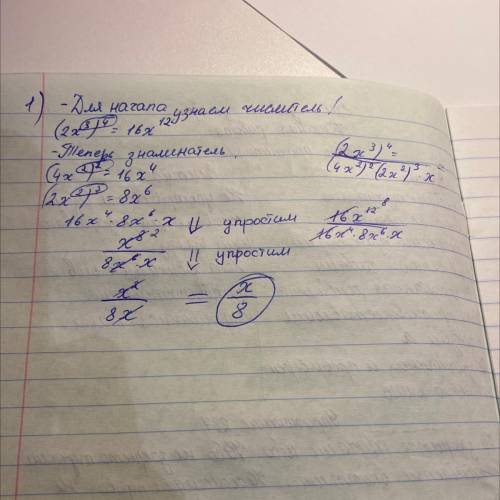 1) - Для начала узнаем числитель!
(2x³)⁴ = 16x¹²
- Теперь знаменатель.
(4x²)² = 16x⁴
(2x²)³ = 8x⁶
16x⁴ · 8x⁶ · x
(2x³)⁴ =
(4x²)² (2x²)³ · x
⇓ упростим
16x¹² ⁸
16x⁴ · 8x⁶ · x
x⁸ ²
8x⁶ · x
⇓ упростим
x² / 8x = x / 8